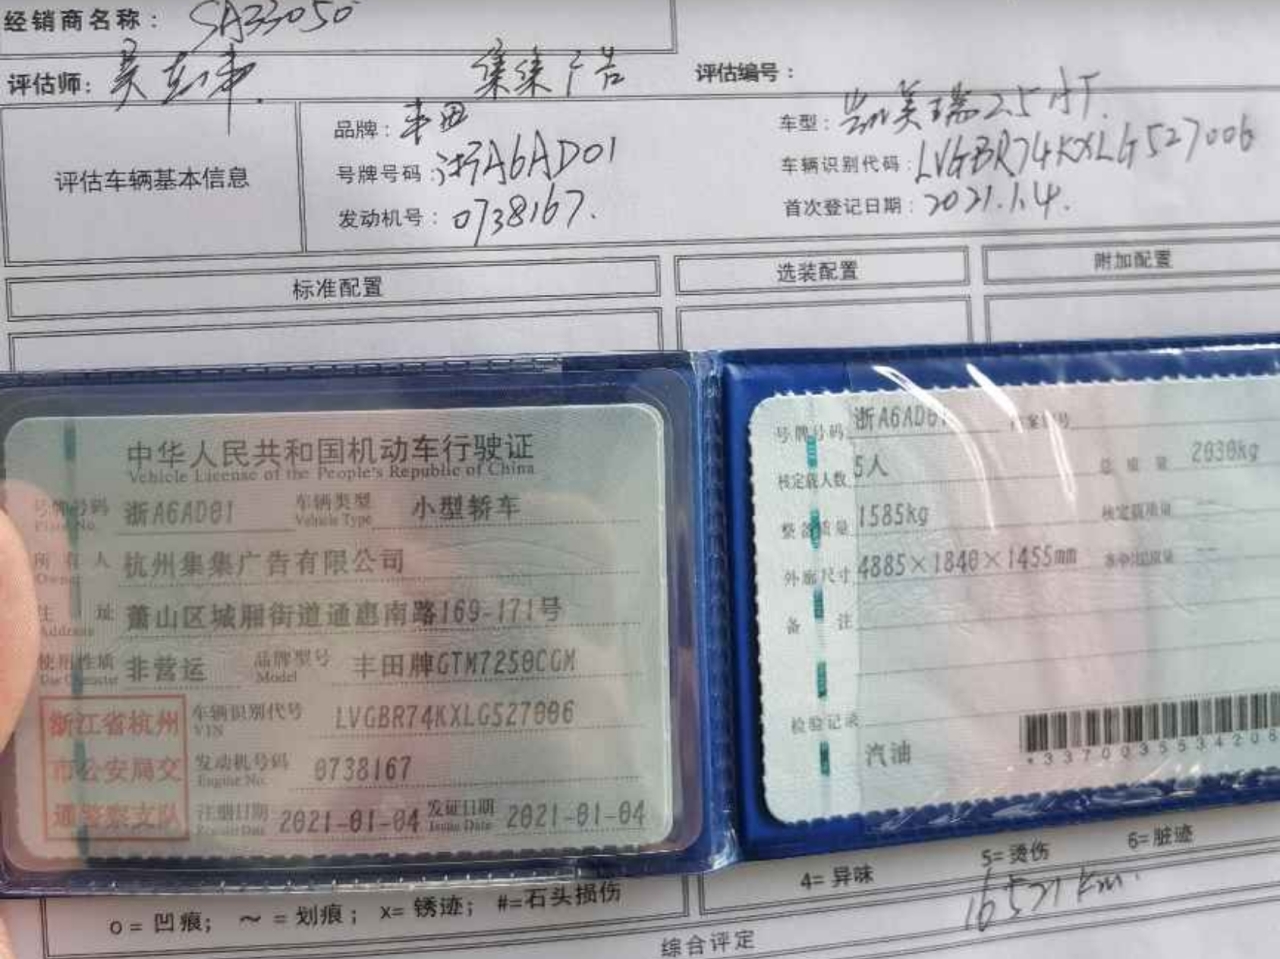 经销商名称： SA33050
评估师： 集集广告 评估编号：
评估车辆基本信息
品牌：丰田 车型：凯美瑞2.5
号牌号码：浙A6AD01 车辆识别代码：LVGBR74KXLG527006
发动机号：0738167. 首次登记日期：2021.1.4.
标准配置 选装配置 附加配置
中华人民共和国机动车行驶证
Vehicle License of the People's Republic of China
号牌号码 浙A6AD01 车辆类型 小型轿车
Plate No. Vehicle Type
所有人 杭州集集广告有限公司
Owner
住 址 萧山区城厢街道通惠南路169-171号
Address
使用性质 非营运 品牌型号 丰田牌GTM7250CGM
Use Character Model
浙江省杭州
市公安局交
通警察支队
车辆识别代号 LVGBR74KXLG527006
VIN
发动机号码 0738167
Engine No.
注册日期 2021-01-04 发证日期 2021-01-04
Register Date Issue Date
号牌号码 浙A6AD01 档案编号
核定载人数 5人 总质量 2030kg
整备质量 1585kg 核定载质量 --
外廓尺寸 4885×1840×1455mm 准牵引总质量 --
备 注
检验记录
汽油
o = 凹痕； ～ = 划痕； x= 锈迹； #=石头损伤
4= 异味 5= 烫伤 6= 脏迹
16571km.
综合评定